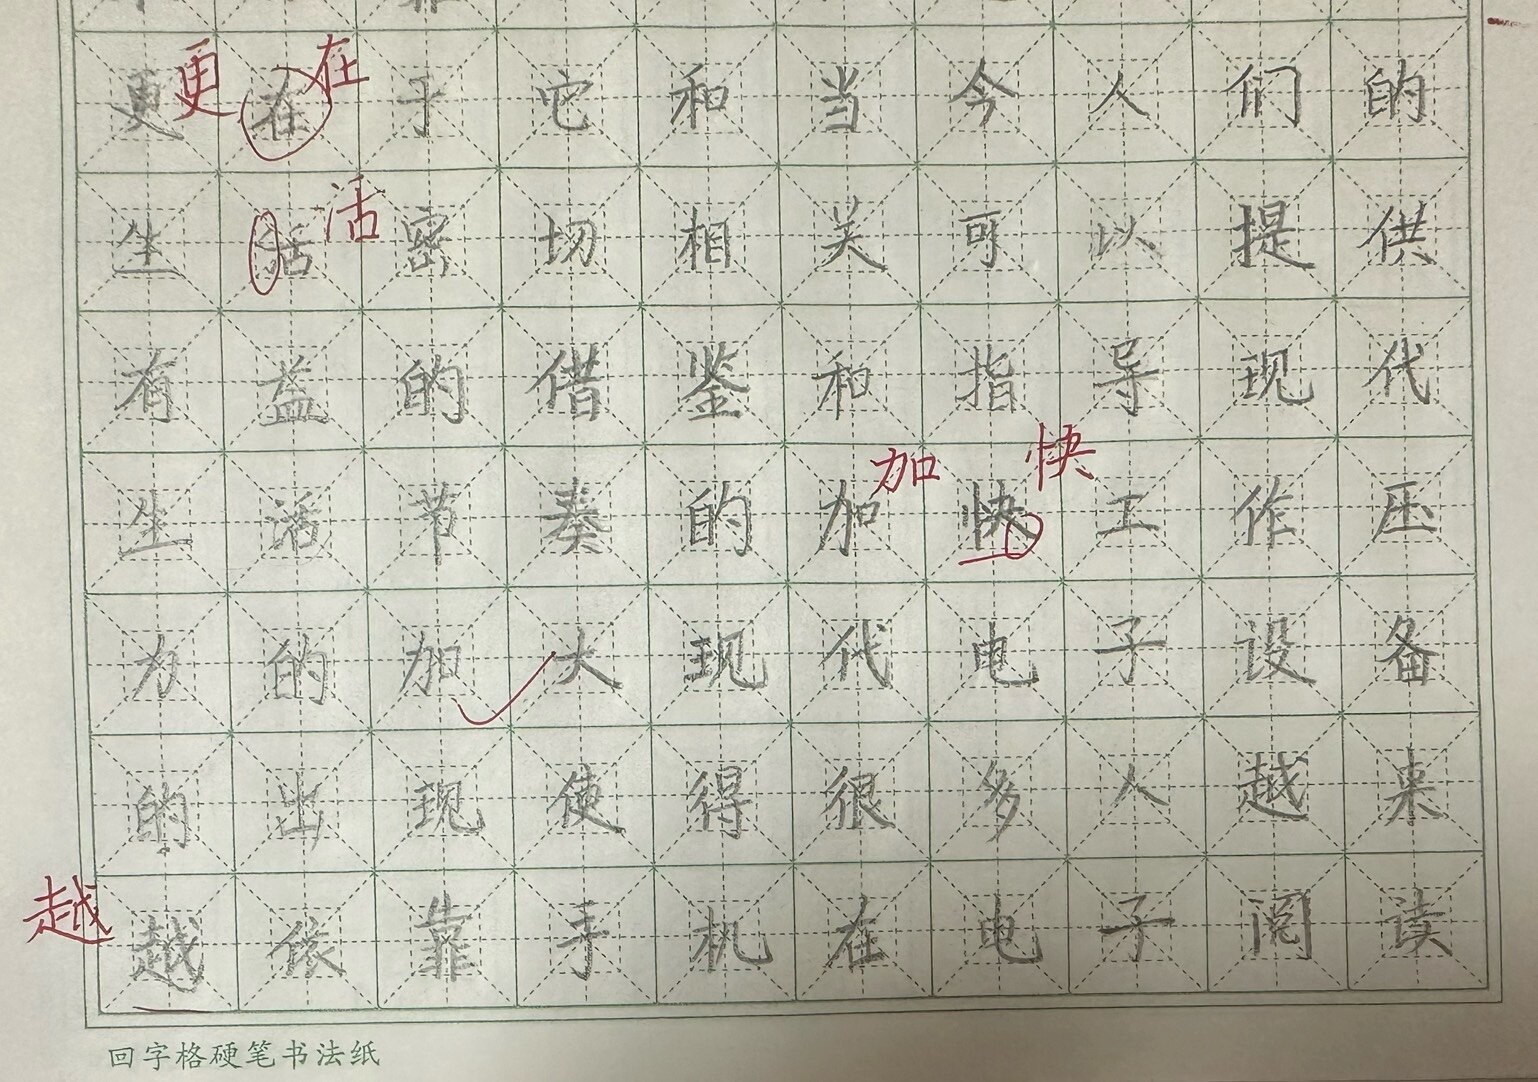 更在于它和当今人们的
更 在
生活密切相关可以提供
活
有益的借鉴和指导现代
生活节奏的加快工作压
加 快
力的加大现代电子设备
的出现使得很多人越来
越依靠手机在电子阅读
越
回字格硬笔书法纸